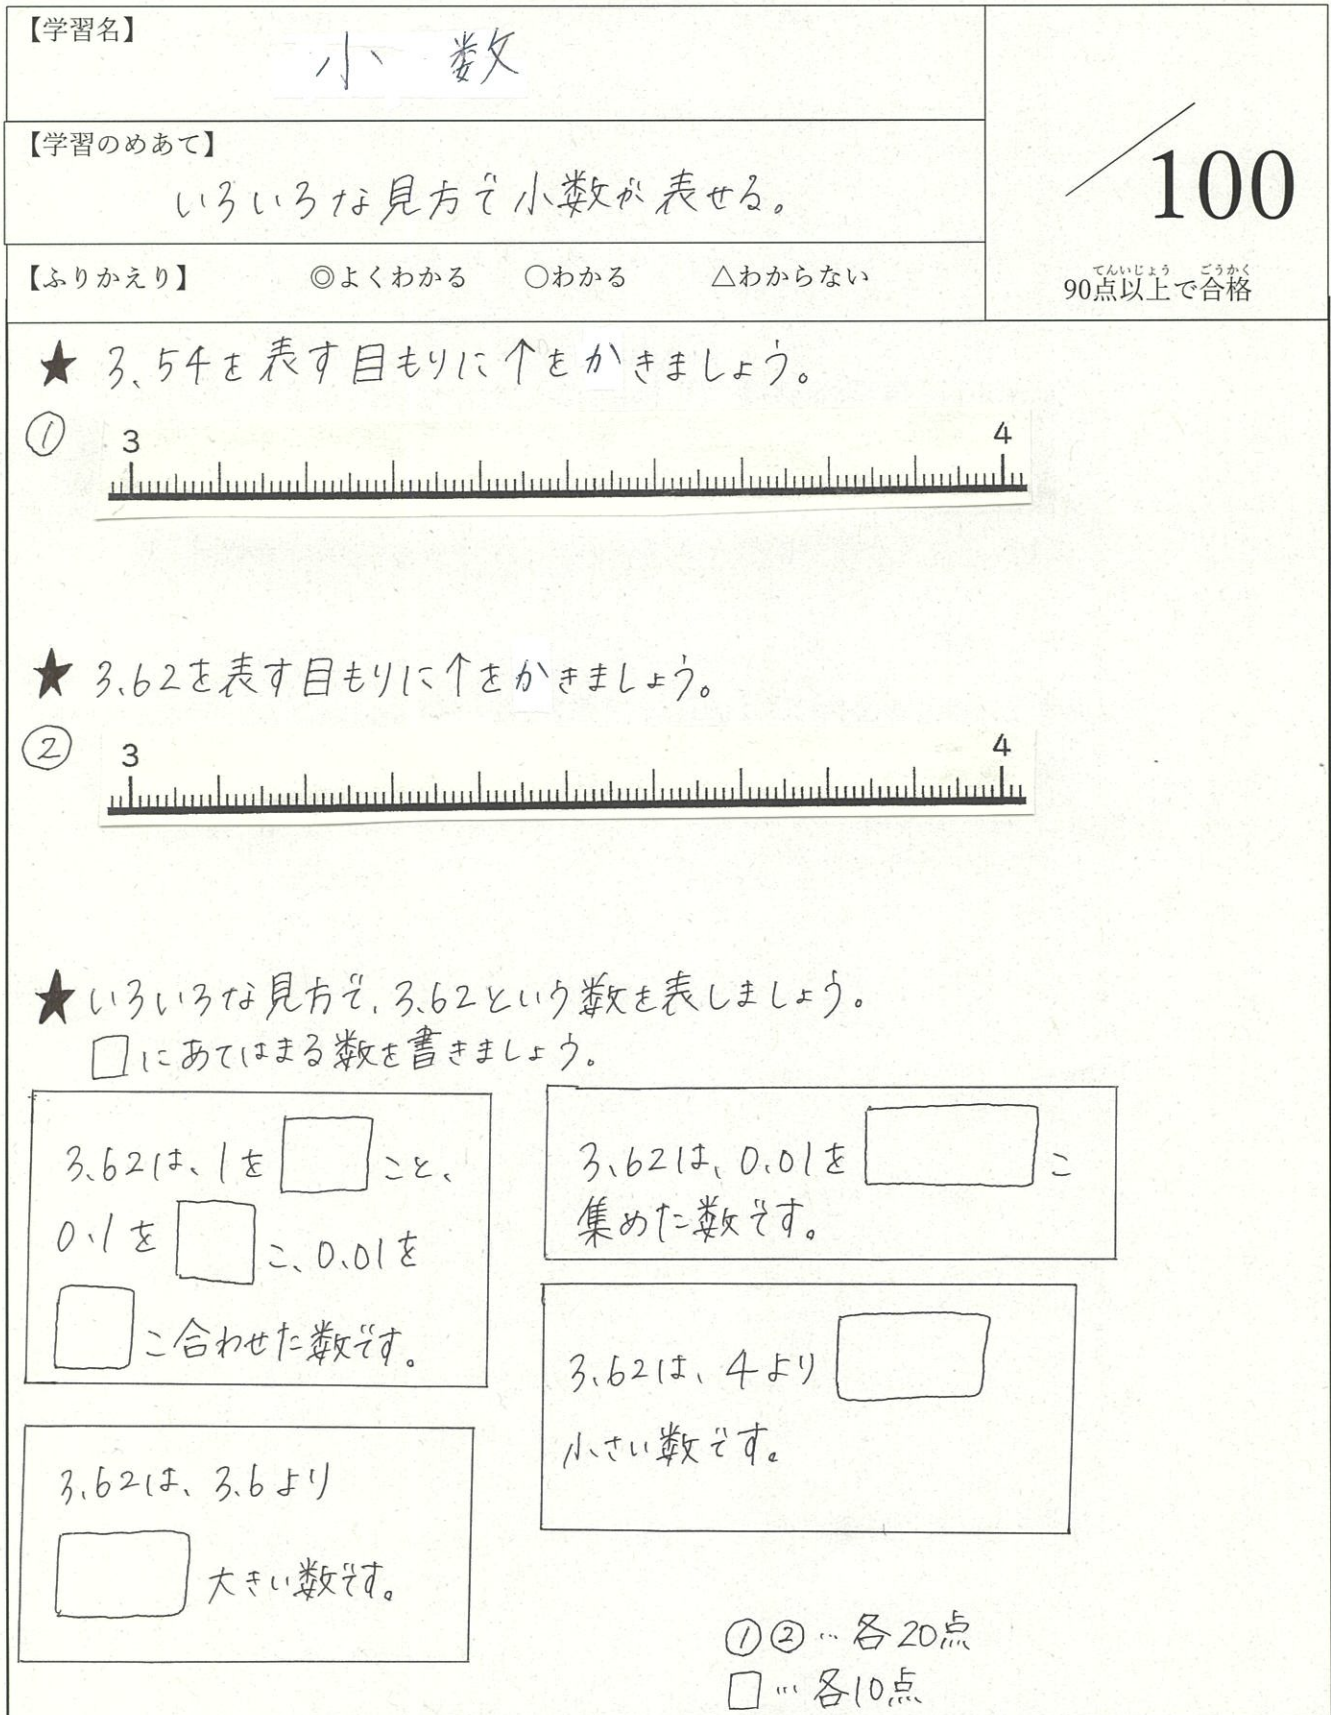 【学習名】
小数
【学習のめあて】
いろいろな見方で小数が表せる。
【ふりかえり】 ◎よくわかる ○わかる △わからない
／100
てんいじょう ごうかく
90点以上で合格
★ 3.54を表す目もりに↑をかきましょう。
① 3 4
★ 3.62を表す目もりに↑をかきましょう。
② 3 4
★ いろいろな見方で、3.62という数を表しましょう。
□にあてはまる数を書きましょう。
3.62は、1を□こと、
0.1を□こ、0.01を
□こ合わせた数です。
3.62は、0.01を□こ
集めた数です。
3.62は、3.6より
□大きい数です。
3.62は、4より□
小さい数です。
①②…各20点
□…各10点